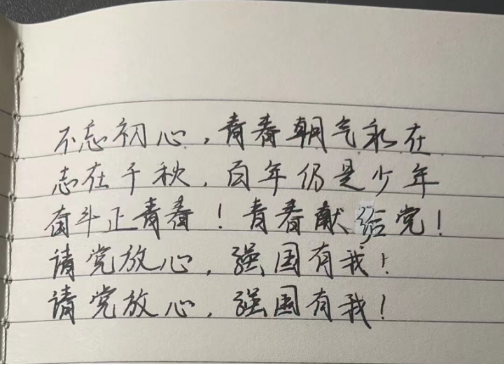 不忘初心，青春朝气永在
志在千秋，百年仍是少年
奋斗正青春！青春献给党！
请党放心，强国有我！
请党放心，强国有我！